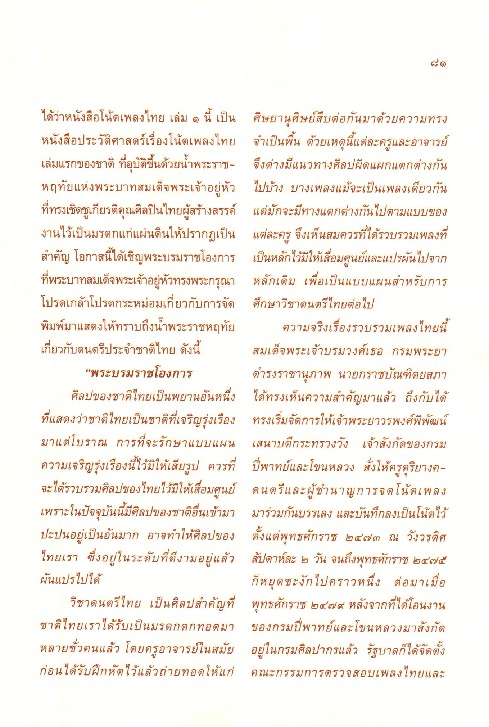 ๘๑
ได้ว่าหนังสือโน้ตเพลงไทย เล่ม ๑ นี้ เป็น
หนังสือประวัติศาสตร์เรื่องโน้ตเพลงไทย
เล่มแรกของชาติ ที่อุบัติขึ้นด้วยน้ำพระราช-
หฤทัยแห่งพระบาทสมเด็จพระเจ้าอยู่หัว
ที่ทรงเชิดชูเกียรติคุณศิลปินไทยผู้สร้างสรรค์
งานไว้เป็นมรดกแก่แผ่นดินให้ปรากฏเป็น
สำคัญ โอกาสนี้ได้เชิญพระบรมราชโองการ
ที่พระบาทสมเด็จพระเจ้าอยู่หัวทรงพระกรุณา
โปรดเกล้าโปรดกระหม่อมเกี่ยวกับการจัด
พิมพ์มาแสดงให้ทราบถึงน้ำพระราชหฤทัย
เกี่ยวกับดนตรีประจำชาติไทย ดังนี้
"พระบรมราชโองการ
ศิลปของชาติไทยเป็นพยานอันหนึ่ง
ที่แสดงว่าชาติไทยเป็นชาติที่เจริญรุ่งเรือง
มาแต่โบราณ การที่จะรักษาแบบแผน
ความเจริญรุ่งเรืองนี้ไว้มิให้เสียรูป ควรที่
จะได้รวบรวมศิลปของไทยไว้มิให้เสื่อมศูนย์
เพราะในปัจจุบันนี้มีศิลปของชาติอื่นเข้ามา
ปะปนอยู่เป็นอันมาก อาจทำให้ศิลปของ
ไทยเรา ซึ่งอยู่ในระดับที่ดีงามอยู่แล้ว
ผันแปรไปได้
วิชาดนตรีไทย เป็นศิลปสำคัญที่
ชาติไทยเราได้รับเป็นมรดกตกทอดมา
หลายชั่วคนแล้ว โดยครูอาจารย์ในสมัย
ก่อนได้รับฝึกหัดไว้แล้วถ่ายทอดให้แก่
ศิษยานุศิษย์สืบต่อกันมาด้วยความทรง
จำเป็นพื้น ด้วยเหตุนี้แต่ละครูและอาจารย์
จึงต่างมีแนวทางศิลปผิดแผกแตกต่างกัน
ไปบ้าง บางเพลงแม้จะเป็นเพลงเดียวกัน
แต่มักจะมีทางแตกต่างกันไปตามแบบของ
แต่ละครู จึงเห็นสมควรที่ได้รวบรวมเพลงที่
เป็นหลักไว้มิให้เสื่อมศูนย์และแปรผันไปจาก
หลักเดิม เพื่อเป็นแบบแผนสำหรับการ
ศึกษาวิชาดนตรีไทยต่อไป
ความจริงเรื่องรวบรวมเพลงไทยนี้
สมเด็จพระเจ้าบรมวงศ์เธอ กรมพระยา
ดำรงราชานุภาพ นายกราชบัณฑิตยสภา
ได้ทรงเห็นความสำคัญมาแล้ว ถึงกับได้
ทรงเริ่มจัดการให้เจ้าพระยาวรพงศ์พิพัฒน์
เสนาบดีกระทรวงวัง เจ้าสังกัดของกรม
ปี่พาทย์และโขนหลวง สั่งให้ครูดุริยางค-
ดนตรีและผู้ชำนาญการจดโน้ตเพลง
มาร่วมกันบรรเลง และบันทึกลงเป็นโน้ตไว้
ตั้งแต่พุทธศักราช ๒๔๗๓ ณ วังวรดิศ
สัปดาห์ละ ๒ วัน จนถึงพุทธศักราช ๒๔๗๕
ก็หยุดชะงักไปคราวหนึ่ง ต่อมาเมื่อ
พุทธศักราช ๒๔๗๙ หลังจากที่ได้โอนงาน
ของกรมปี่พาทย์และโขนหลวงมาสังกัด
อยู่ในกรมศิลปากรแล้ว รัฐบาลก็ได้จัดตั้ง
คณะกรรมการตรวจสอบเพลงไทยและ